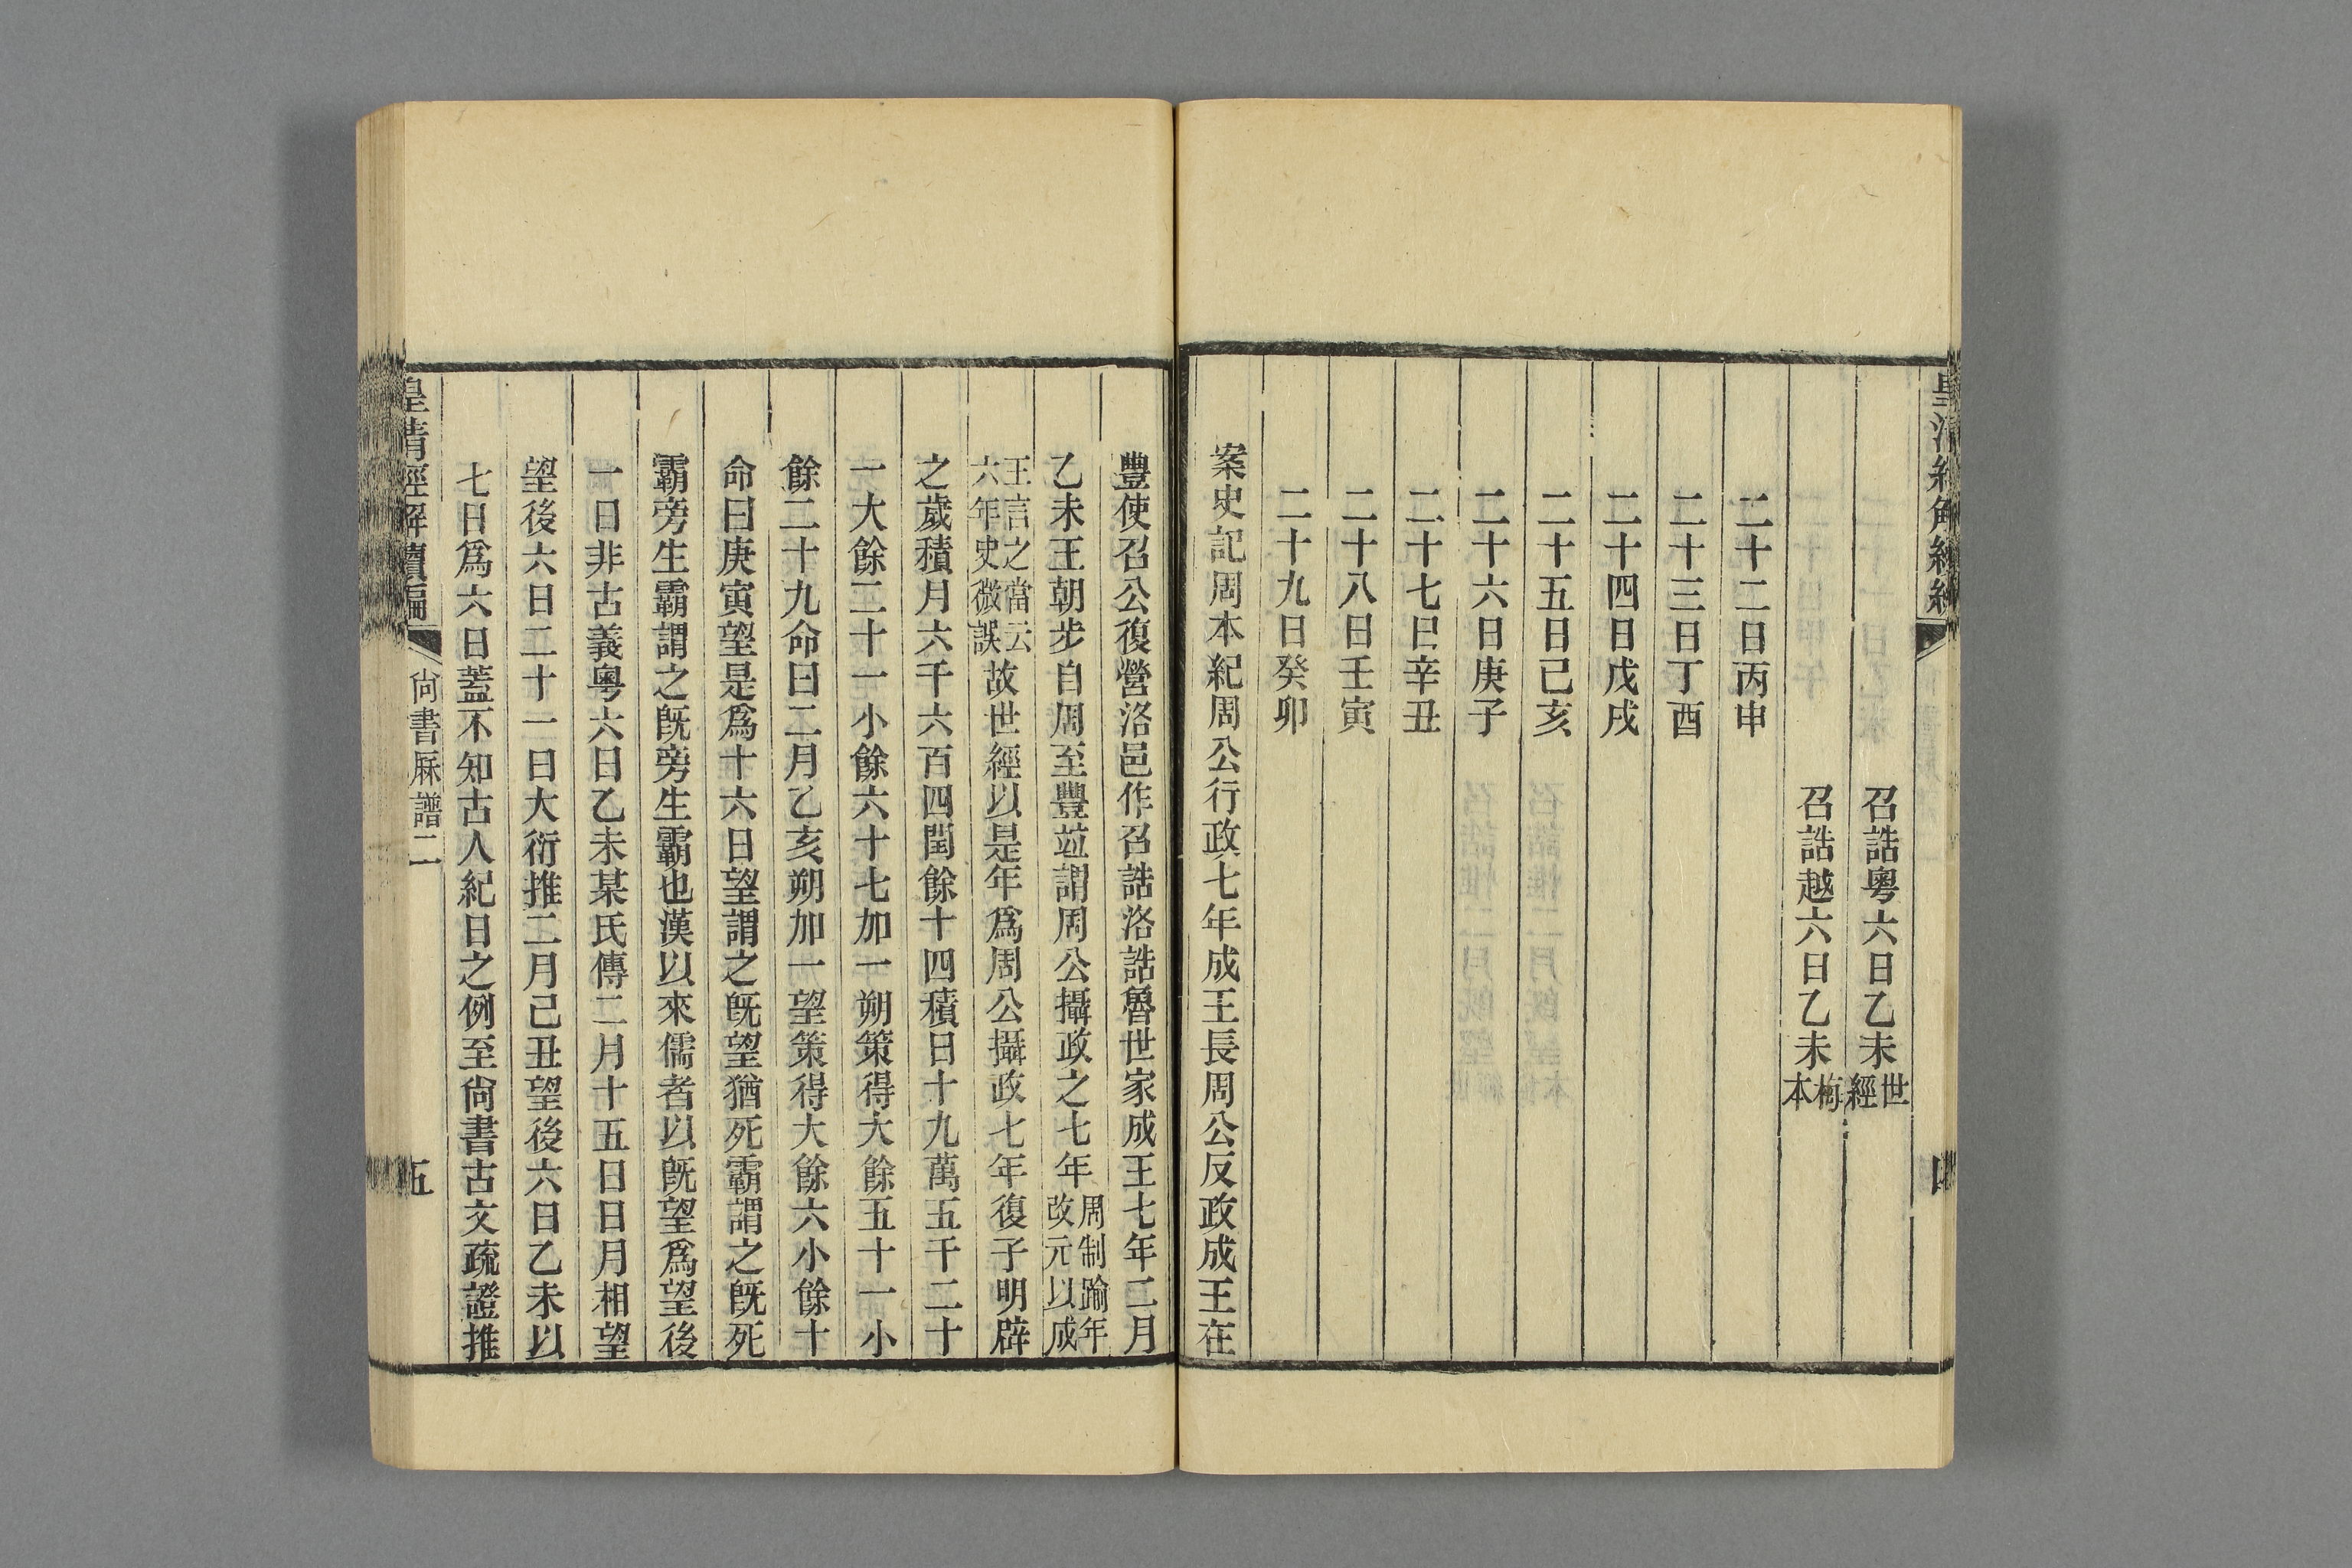 召誥粵六日乙未世經
召誥越六日乙未梅本
二十二日丙申
二十三日丁酉
二十四日戊戌
二十五日己亥
二十六日庚子
二十七日辛丑
二十八日壬寅
二十九日癸卯
案史記周本紀周公行政七年成王長周公反政成王在
豐使召公復營洛邑作召誥洛誥魯世家成王七年二月
乙未王朝步自周至豐竝謂周公攝政之七年周制踰年改元以成
王言之當云六年史微誤故世經以是年爲周公攝政七年復子明辟
之歲積月六千六百四閏餘十四積日十九萬五千二十
一大餘二十一小餘六十七加一朔策得大餘五十一小
餘二十九命曰二月乙亥朔加一望策得大餘六小餘十
命曰庚寅望是爲十六日望謂之旣望猶死霸謂之旣死
霸旁生霸謂之旣旁生霸也漢以來儒者以旣望爲望後
一日非古義粵六日乙未某氏傳二月十五日日月相望
望後六日二十一日大衍推二月己丑望後六日乙未以
七日爲六日蓋不知古人紀日之例至尙書古文疏證推
皇淸經解續編
尙書厤譜二
五